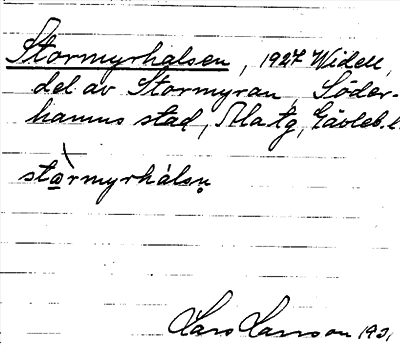 Stormyrhalsen, 1927 Widell,
del av Stormyran, Söder-
hamns stad, Ala tg, Gävleb. l.
stormyrhálsn̥
Lars Larsson 193